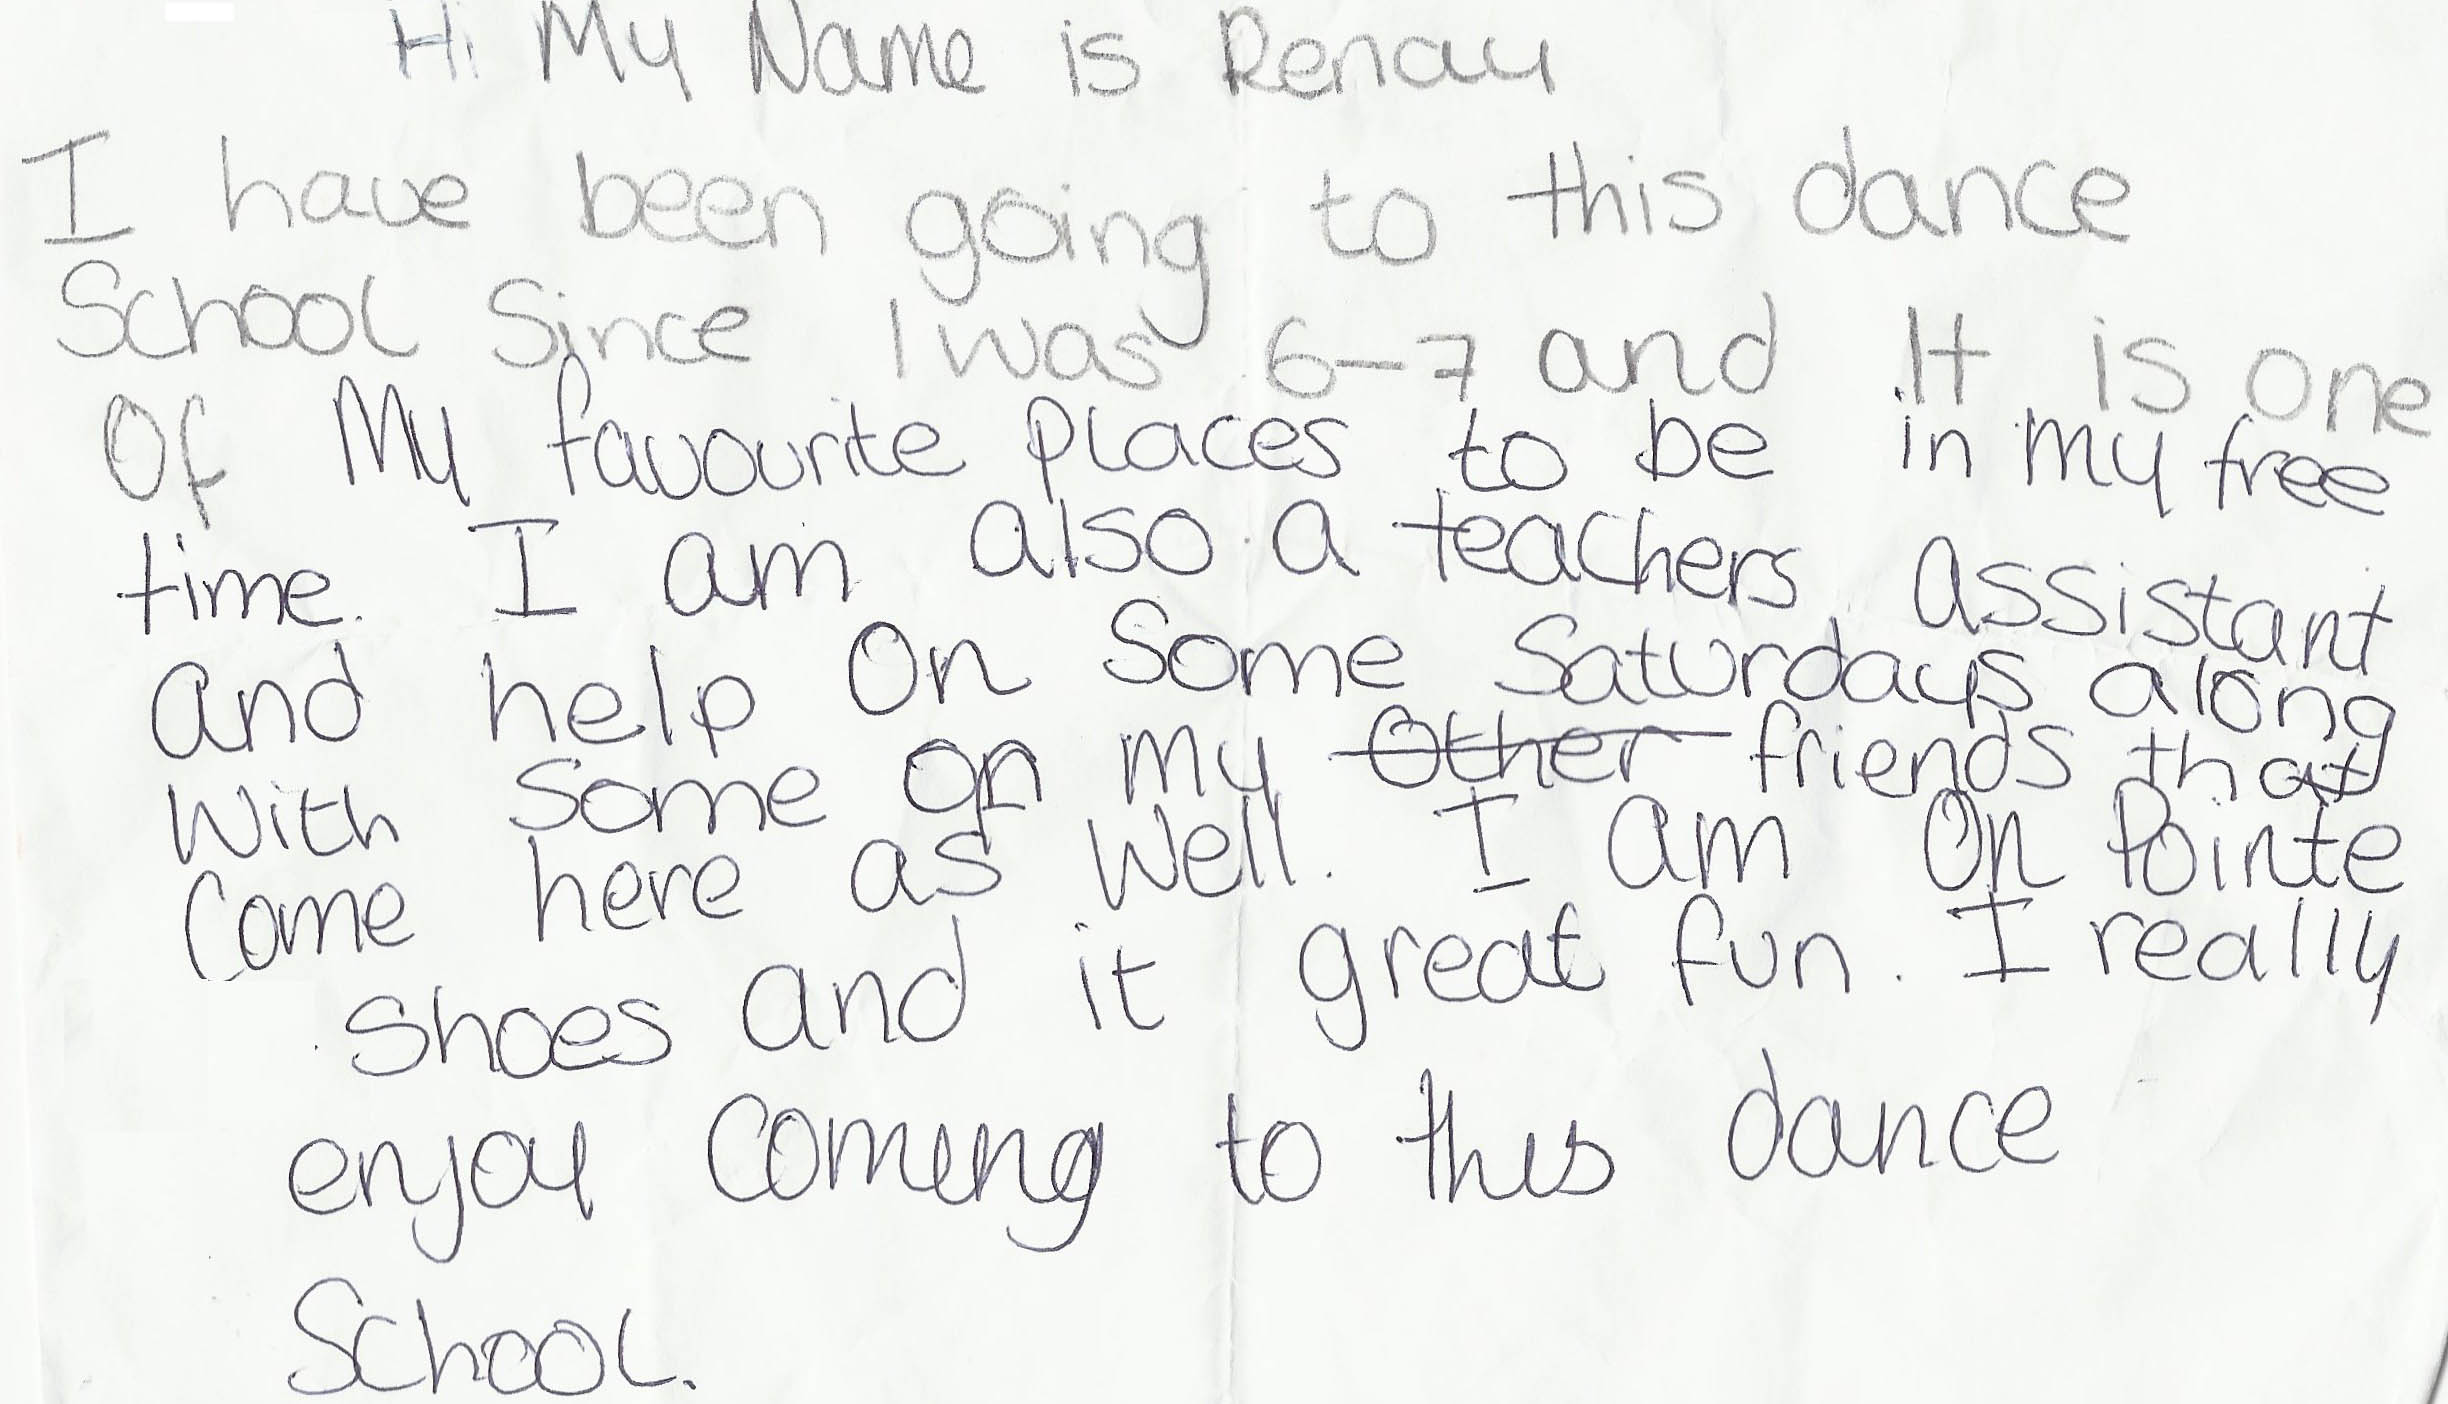 Hi My Name is Renay
I have been going to this dance
School Since I was 6-7 and It is one
Of My favourite places to be in my free
time. I am also a teachers assistant
and help On Some Saturdays along
With Some on my ~~Other~~ friends that
Come here as Well. I am On Pointe
Shoes and it great fun. I really
enjoy Coming to this dance
School.